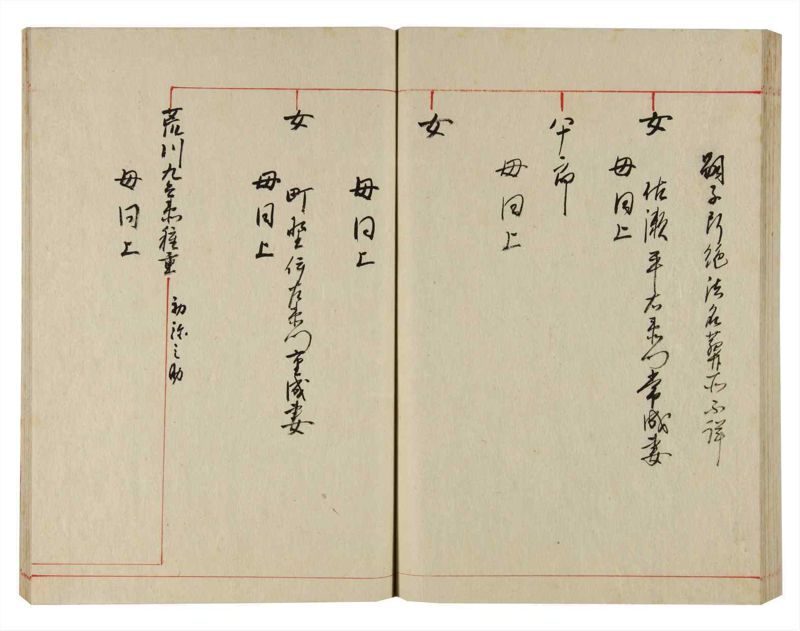 嗣子断絶法名葬所不詳
女
佐瀬平右衛門常成妻
母同上
八十郎
母同上
女
母同上
女
町野伝左衛門重成妻
母同上
荒川九兵衛種重
初弥之助
母同上